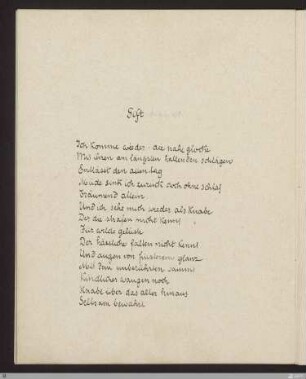 Gift
Ich komme wieder · die nahe glocke
Mit ihren am längsten hallenden schlägen
Entlässt den alten tag
Müde sink ich zurück doch ohne schlaf
Träumend allein
Und ich sehe mich wieder als Knabe
Der die strafen nicht kennt
Für wilde gelüste
Der hässliche falten nicht kennt
Und augen von finsterem glanz
Mit dem unberührten saum
Kindlicher wangen noch
Knabe über das alter hinaus
Seltsam bewahrt